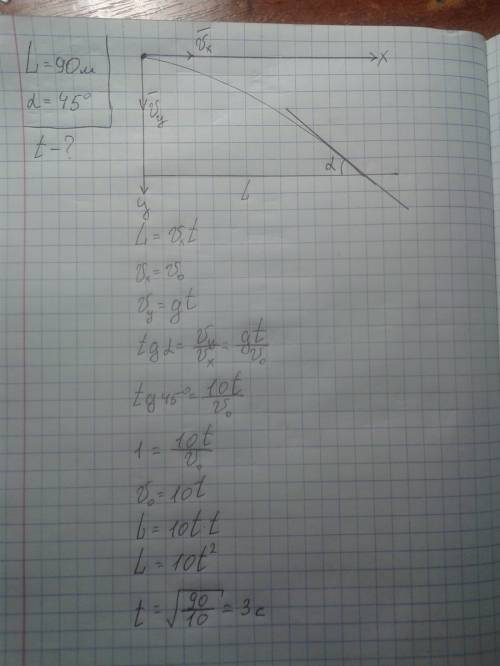 L = 90м
α = 45°
t - ?
v̄ₓ
x
v̄ᵧ
α
L
y
L = vₓt
vₓ = v₀
vᵧ = gt
tg α = vᵧ/vₓ = gt/v₀
tg 45° = 10t/v₀
1 = 10t/v₀
v₀ = 10t
L = 10t·t
L = 10t²
t = √(90/10) = 3с